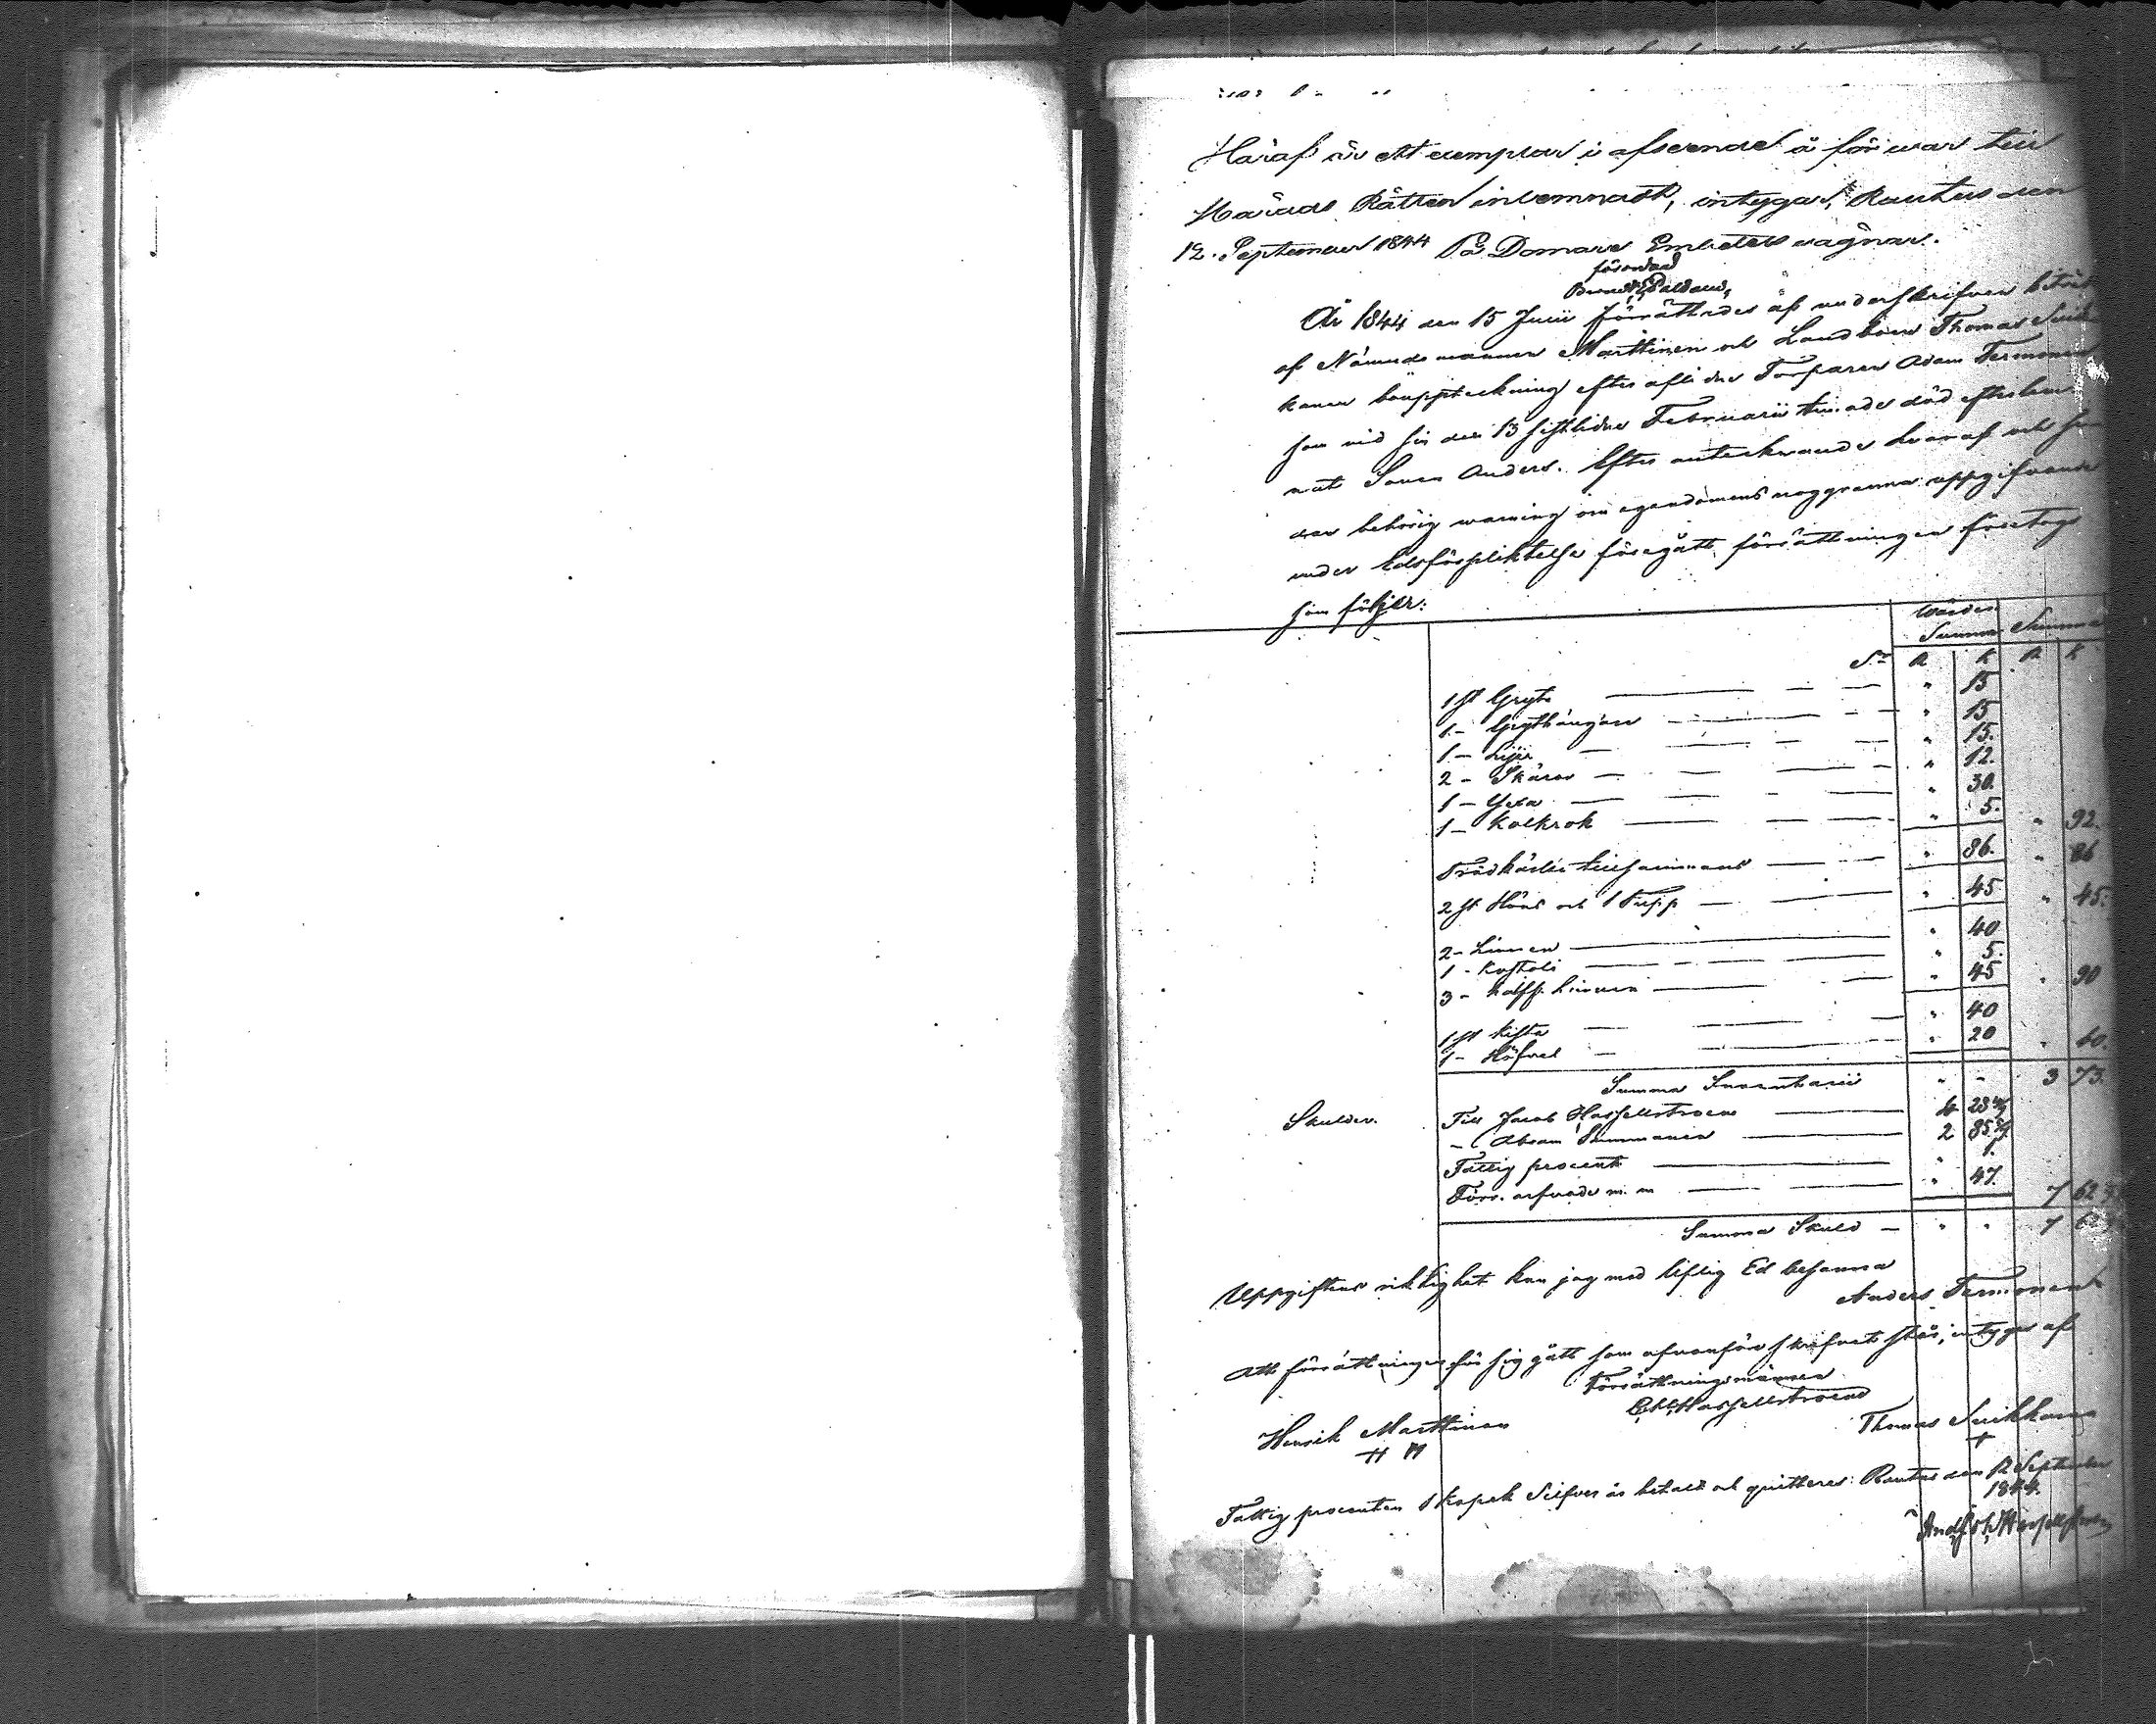 Häraf är ett exemplar i afseende å förwar till
Härads Rätten inlemnadt, intygar, Rautus den
12. September 1844 På Domare Embetets wägnar.
förordnad
År 1844 den 15 Julii förrättades af underskrifven biträdd
af Nämndemannen Marttinen och Landbonen Thomas Suik
kanen bouppteckning efter aflidne Torparen Adam Termonen
som vid sin den 13 sistledne Februarii timade död efterlem
nat Sonen Anders. Efter antecknande häraf och sam
dan behörig warning om egendomens noggranna uppgifvande
under Edsförpliktelse föregått, förrättningen företogs
som följer:
Wärde Summa
Summa
Sr R k R k
1 st Gryta " 15
1 - Grythängare " 15
1 - Lije " 15.
2 - Skäror " 12.
1 - Yxa " 30.
1 - Kolkrok " 5. " 92.
Trädkäril tillsammans " 86. " 86
2 st Höns och 1 Tupp " 45 " 45.
2 - Linnen " 40
1 - " 5.
3 - Linnen " 45 " 90
1 st Kista " 40
1 - Höfvel " 20 " 60.
Summa Inventarii " " 3 73.
Skulder. Till Jacob Hasselstroem 4 28
- Abram Summanen 2 85
Fattig procent " 1.
Förr. arfvode m. m " 47. 7 62
Summa Skuld - " " 7 62
Uppgiftens riktighet kan jag med liflig Ed besanna
Anders Termonen
Att förrättningen för sig gått som ofvanföre skrifvet står, intygas af
Förrättningsmännen
Hasselstroem
Henrik Marttinen
H M
Thomas Suikkanen
+
Fattig procenten 1 kopek Silfver är betalt och quitteras. Rautus den 12 September
1844.